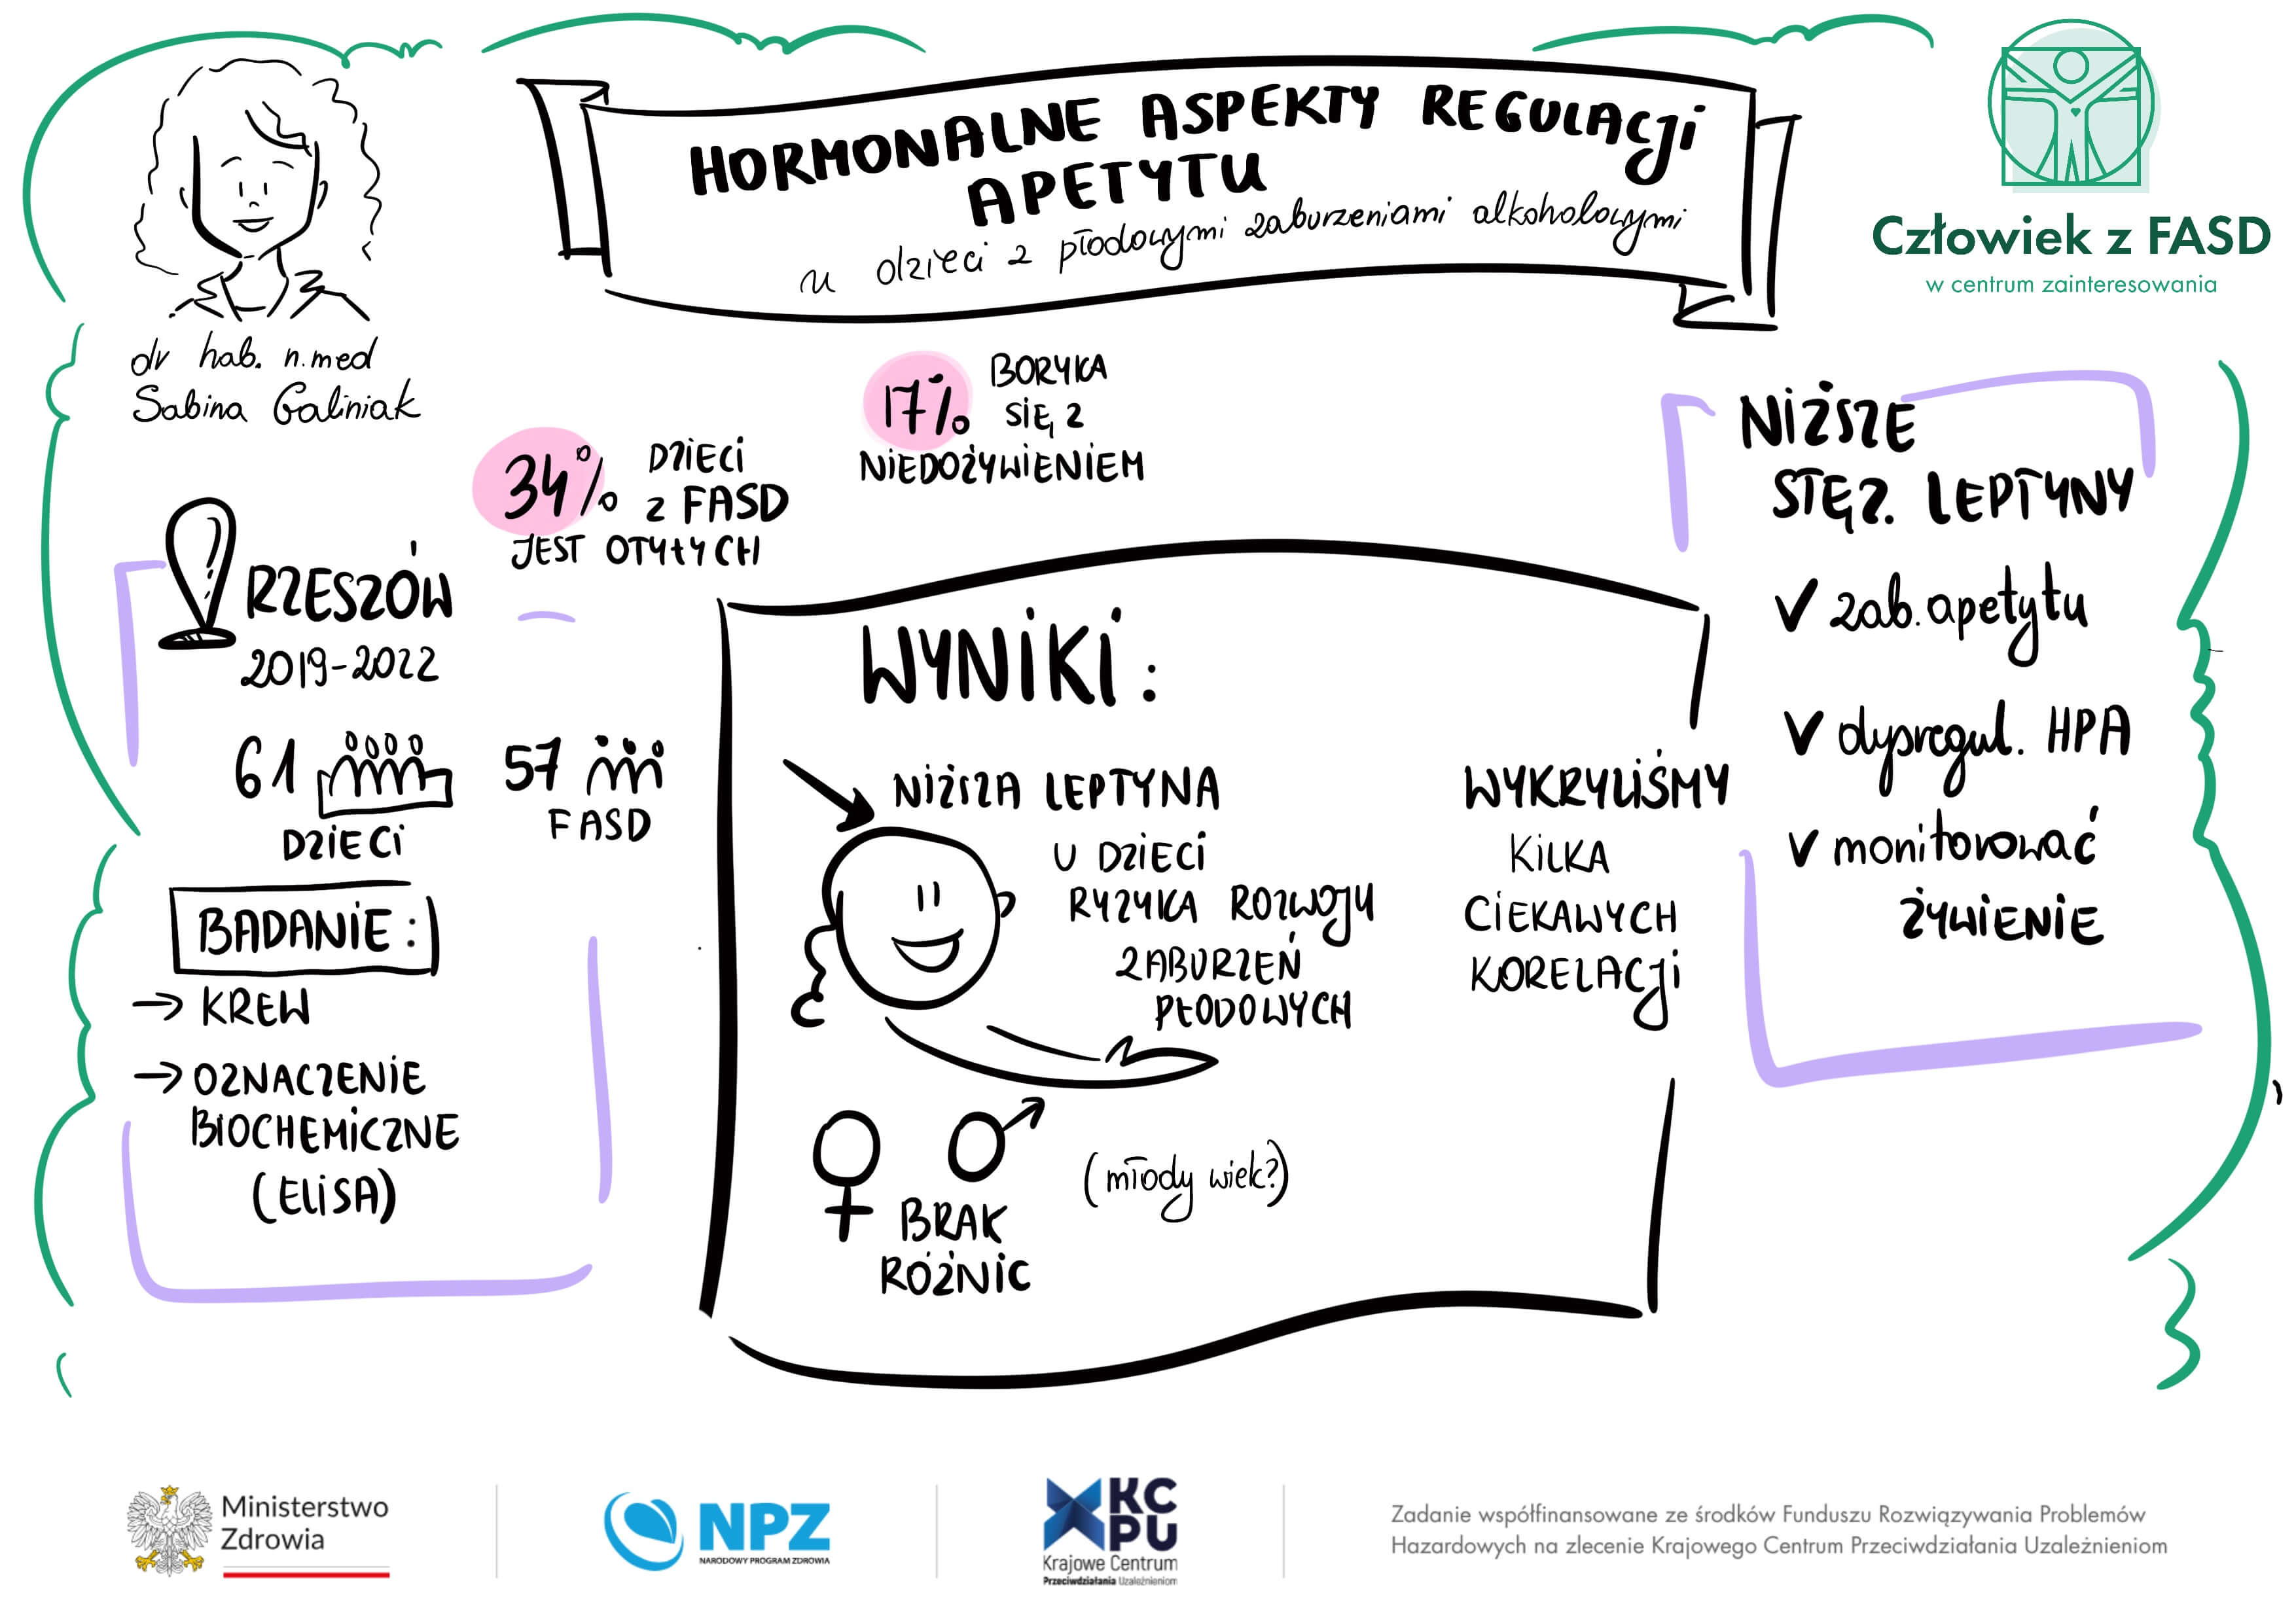 HORMONALNE ASPEKTY REGULACJI
APETYTU
u dzieci z płodowymi zaburzeniami alkoholowymi
Człowiek z FASD
w centrum zainteresowania
dr hab. n.med
Sabina Galiniak
34% DZIECI
z FASD
JEST OTYŁYCH
17% BORYKA
SIĘ Z
NIEDOŻYWIENIEM
RZESZÓW
2019-2022
61
DZIECI
57
FASD
BADANIE:
→ KREW
→ OZNACZENIE
BIOCHEMICZNE
(ELISA)
WYNIKI:
NIŻSZA LEPTYNA
U DZIECI
RYZYKA ROZWOJU
ZABURZEŃ
PŁODOWYCH
BRAK
RÓŻNIC
(młody wiek?)
WYKRYLIŚMY
KILKA
CIEKAWYCH
KORELACJI
NIŻSZE
STĘŻ. LEPTYNY
✓ zab. apetytu
✓ dysregul. HPA
✓ monitorować
ŻYWIENIE
Ministerstwo
Zdrowia
NPZ
NARODOWY PROGRAM ZDROWIA
KC
PU
Krajowe Centrum
Przeciwdziałania Uzależnieniom
Zadanie współfinansowane ze środków Funduszu Rozwiązywania Problemów
Hazardowych na zlecenie Krajowego Centrum Przeciwdziałania Uzależnieniom